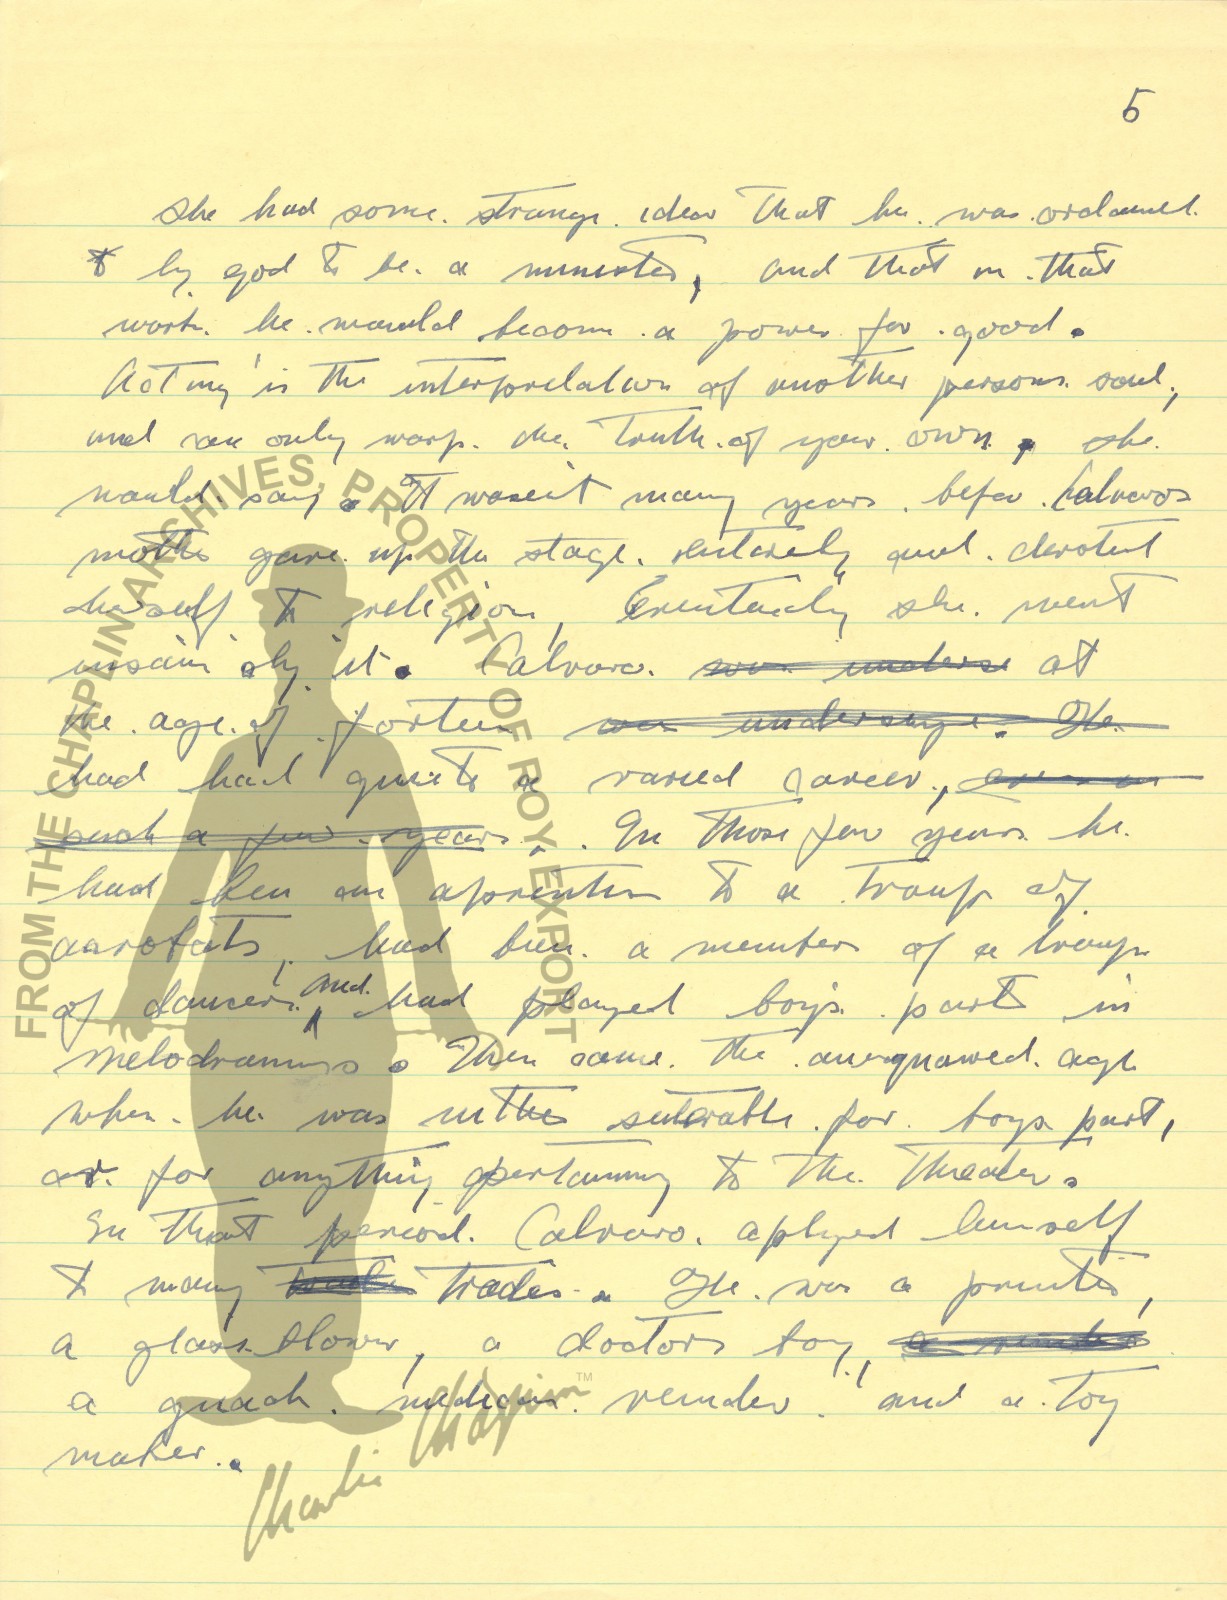 5
She had some strange idea that he was ordained
by god to be a minister, and that in that
work he would become a power for good.
Acting is the interpretation of another persons soul,
and can only warp the truth of your own, she
would say. It wasn't many years befor Calveros
mother gave up the stage entirely and devoted
herself to religion, Eventually she went
insain by it. Calvaro was undersi at
the age of forteen was undersize. He
had had quite a varied career, even in
such a few years. In those few years he
had ben an aprentice to a troup of
acrobats, had been a member of a troup
of dancers, and had played boy's part in
melodramas. Then came the age
when he was niether suterable for boys part,
or for anything pertaining to the theater.
In that period Calvaro aplyed himself
to many trades trades. He was a printer,
a glass blower, a doctors boy, a vender
a quack medicin vender and a toy
maker.
FROM THE CHAPLIN ARCHIVES, PROPERTY OF ROY EXPORT
Charlie Chaplin TM